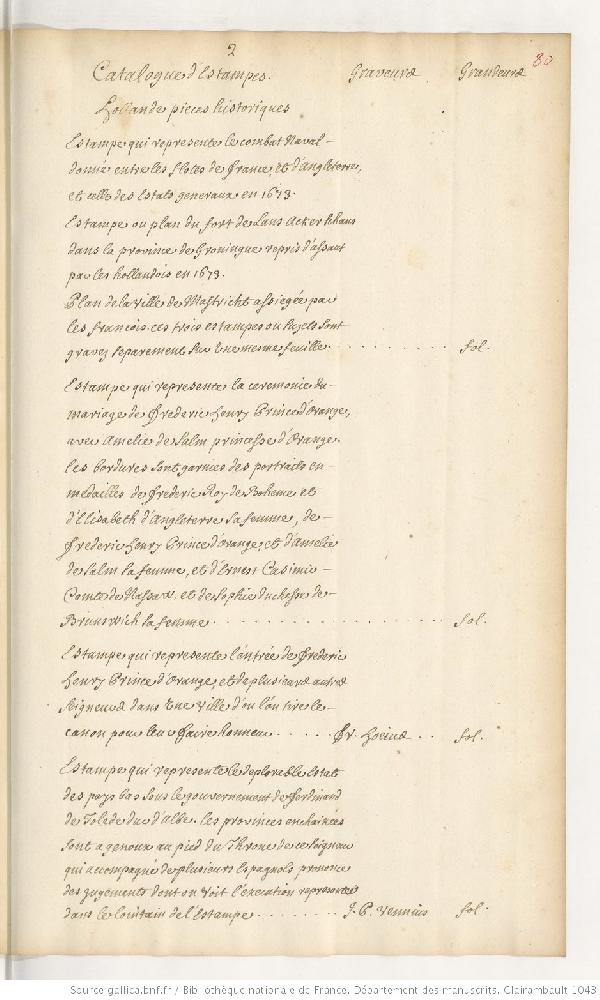 2
80
Catalogue d'Estampes. Graveurs Grandeurs
Hollande pieces historiques
Estampe qui represente le combat Naval
donné entre les flotes de france, et d'Angleterre,
et celle des Estats generaux en 1673.
Estampe ou plan du fort de Lans
dans la province de Groningue repris d'assaut
par les hollandois en 1673.
Plan de la ville de Mastricht assiegée par
les francois. ces trois estampes ou sujets sont
gravez separement sur une mesme feuille. fol.
Estampe qui represente la ceremonie du
mariage de frederic henry Prince d'Orange,
avec Amelie de Salm princesse d'Orange.
les bordures sont garnies des portraits en
medailles de frederic Roy de Boheme et
d'Elisabeth d'Angleterre sa femme, de
frederic henry Prince d'orange, et d'Amelie
de Salm sa femme, et d'Ernest Casimir
Comte de Nassau, et de Sophie duchesse de
Brunswich sa femme fol.
Estampe qui represente l'entrée de frederic
henry Prince d'Orange, et de plusieurs autres
Seigneurs dans une ville d'ou l'on tire le
canon pour leur faire honneur fol.
Estampe qui represente le deplorable Estat
des pays bas sous le gouvernement de ferdinand
de Tolede duc d'albe. les provinces enchainées
sont a genoux au pied du Throne de ce seigneur
qui accompagné de plusieurs Espagnols prononce
des jugements dont on voit l'execution representée
dans le lointain de l'Estampe J. P. Vennius fol.
Source gallica.bnf.fr / Bibliothèque nationale de France. Département des manuscrits. Clairambault 1043